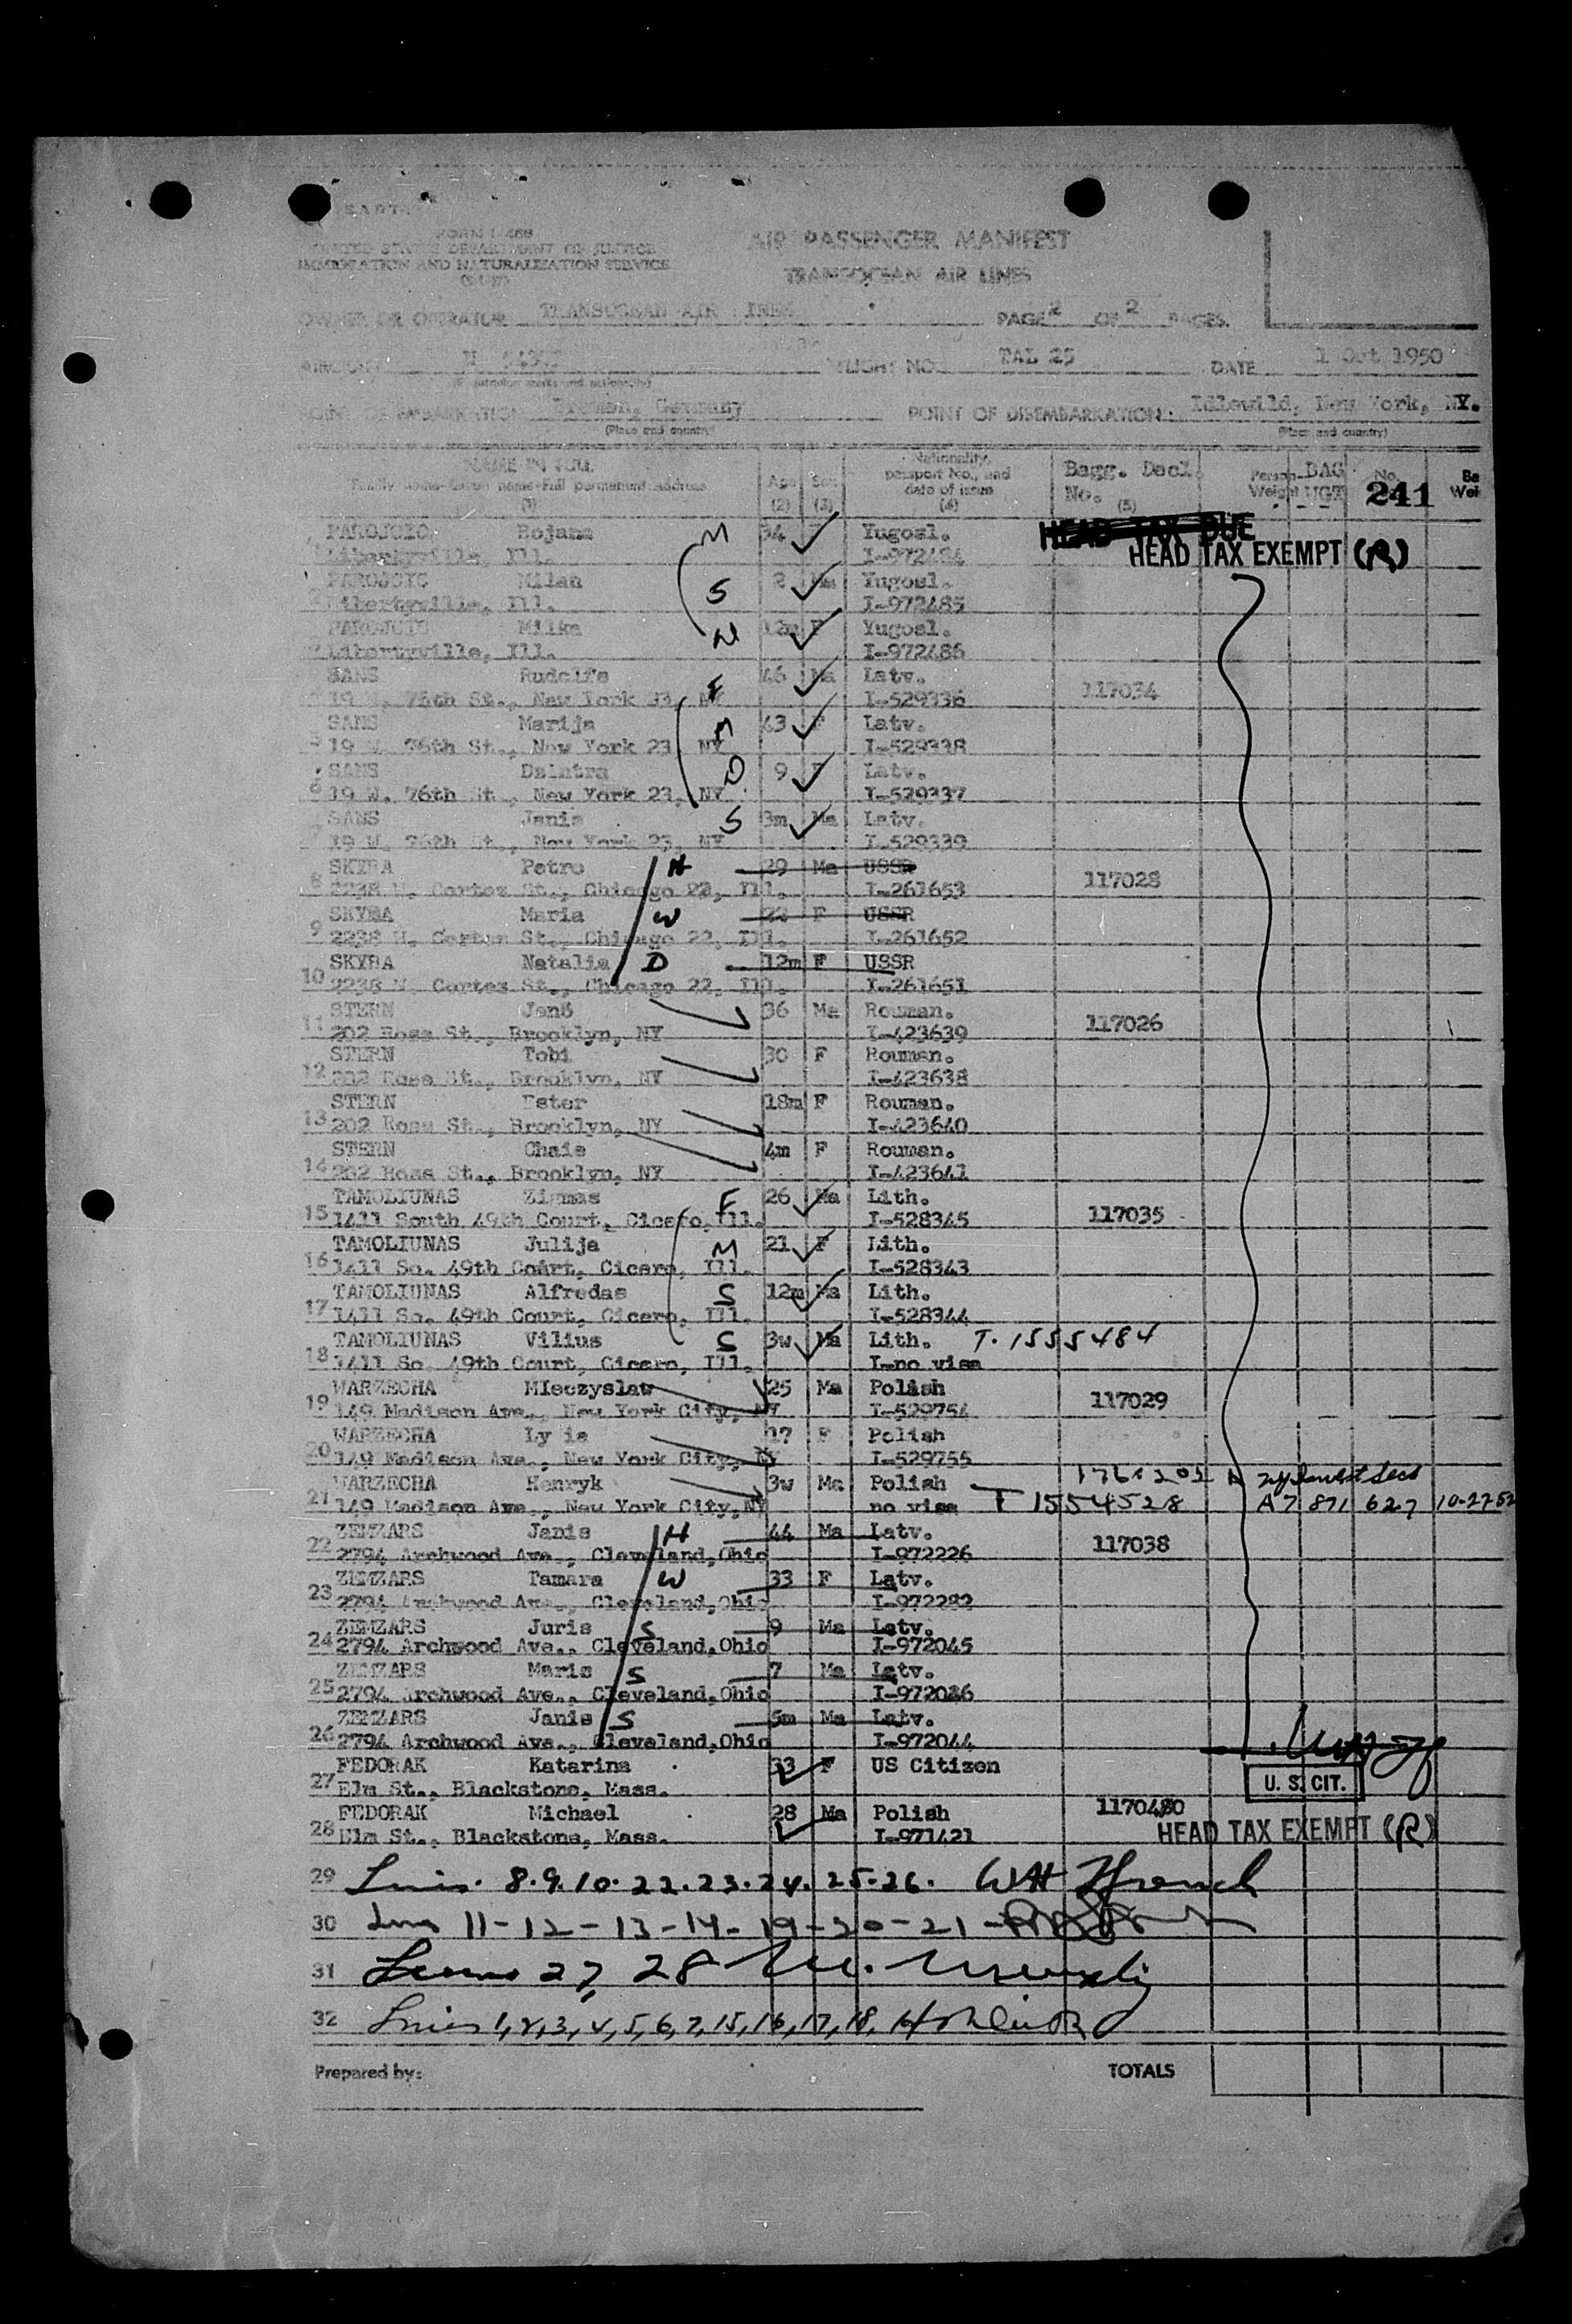 FORM I-466
UNITED STATES DEPARTMENT OF JUSTICE
IMMIGRATION AND NATURALIZATION SERVICE
AIR PASSENGER MANIFEST
TRANSOCEAN AIR LINES
OWNER OR OPERATOR TRANSOCEAN AIR LINES PAGE 2 OF 2 PAGES.
FLIGHT NO. TAL 25 DATE 1 Oct 1950
POINT OF EMBARKATION Bremen, Germany POINT OF DISEMBARKATION: Idlewild, New York, NY.
(Place and country) (Place and country)
NAME IN FULL Age Sex Nationality, passport No., and date of issue Bagg. Decl. No. Person Weight BAG WGT No. 241 Ba Wei
Family name-Given name-Full permanent address
(1) (2) (3) (4) (5)
PAROJCIC Bojana M 34 Yugosl. HEAD TAX DUE
Libertyville, Ill. I-972484 HEAD TAX EXEMPT (R)
PAROJCIC Milan S 2 Ma Yugosl.
Libertyville, Ill. I-972485
PAROJCIC Milka 12m F Yugosl.
Libertyville, Ill. I-972486
SANS Rudolfs F 46 Ma Latv.
19 W. 76th St., New York 23, NY I-529336 117034
SANS Marija M 43 F Latv.
5 19 W. 76th St., New York 23, NY I-529338
SANS Dzintra D 9 F Latv.
6 19 W. 76th St., New York 23, NY I-529337
SANS Janis S 3m Ma Latv.
7 19 W. 76th St., New York 23, NY I-529339
SKYBA Petro H 29 Ma USSR
8 2238 W. Cortez St., Chicago 22, Ill. I-261653 117028
SKYBA Maria W 22 F USSR
9 2238 W. Cortez St., Chicago 22, Ill. I-261652
SKYBA Natalia D 12m F USSR
10 2238 W. Cortez St., Chicago 22, Ill. I-261651
STERN Jenö 36 Ma Rouman.
11 202 Ross St., Brooklyn, NY I-423639 117026
STERN Tobi 30 F Rouman.
12 202 Ross St., Brooklyn, NY I-423638
STERN Ester 18m F Rouman.
13 202 Ross St., Brooklyn, NY I-423640
STERN Chaie 4m F Rouman.
14 202 Ross St., Brooklyn, NY I-423641
TAMOLIUNAS Zigmas F 26 Ma Lith.
15 1411 South 49th Court, Cicero, Ill. I-528345 117035
TAMOLIUNAS Julija M 21 F Lith.
16 1411 So. 49th Court, Cicero, Ill. I-528343
TAMOLIUNAS Alfredas S 12m Ma Lith.
17 1411 So. 49th Court, Cicero, Ill. I-528344
TAMOLIUNAS Vilius S 3w Ma Lith. T. 1555484
18 1411 So. 49th Court, Cicero, Ill. I-no visa
WARZECHA MIeczyslaw 25 Ma Polish
19 149 Madison Ave., New York City, NY I-529754 117029
WARZECHA Ly ia 17 F Polish
20 149 Madison Ave., New York City, NY I-529755
WARZECHA Henryk 3w Ma Polish
21 149 Madison Ave., New York City, NY no visa T 1554528 A7 871 627 10-27-52
ZEMZARS Janis H 44 Ma Latv.
22 2794 Archwood Ave., Cleveland, Ohio I-972226 117038
ZEMZARS Tamara W 33 F Latv.
23 2794 Archwood Ave., Cleveland, Ohio I-972282
ZEMZARS Juris S 9 Ma Latv.
24 2794 Archwood Ave., Cleveland, Ohio I-972045
ZEMZARS Maris S 7 Ma Latv.
25 2794 Archwood Ave., Cleveland, Ohio I-972086
ZEMZARS Janis S 5m Ma Latv.
26 2794 Archwood Ave., Cleveland, Ohio I-972044
FEDORAK Katarina 33 F US Citizen
27 Elm St., Blackstone, Mass. U. S. CIT.
FEDORAK Michael 28 Ma Polish 1170480
28 Elm St., Blackstone, Mass. I-971421 HEAD TAX EXEMPT (R)
29 Lines. 8.9.10.22.23.24.25.26.
30 Lines 11-12-13-14-19-20-21-
31 Lines 27, 28
32 Lines 1,2,3,4,5,6,7,15,16,17,18,
Prepared by: TOTALS